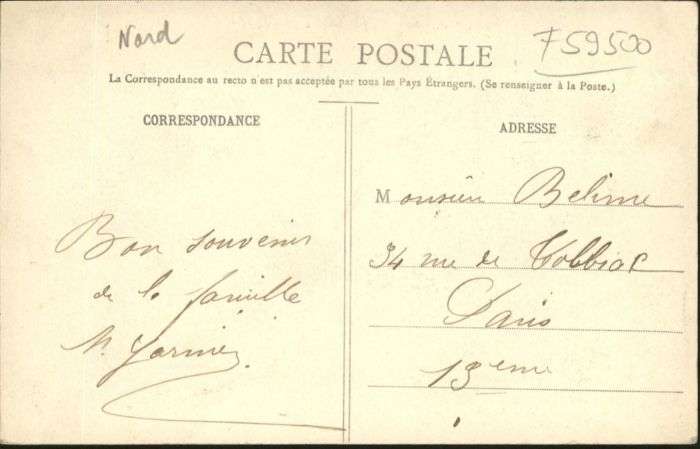 Nord
F59500
CARTE POSTALE
La Correspondance au recto n'est pas acceptée par tous les Pays Étrangers. (Se renseigner à la Poste.)
CORRESPONDANCE
Bon souvenir
de la famille
M. Garnier
ADRESSE
Monsieur Belime
34 rue de Tolbiac
Paris
13eme